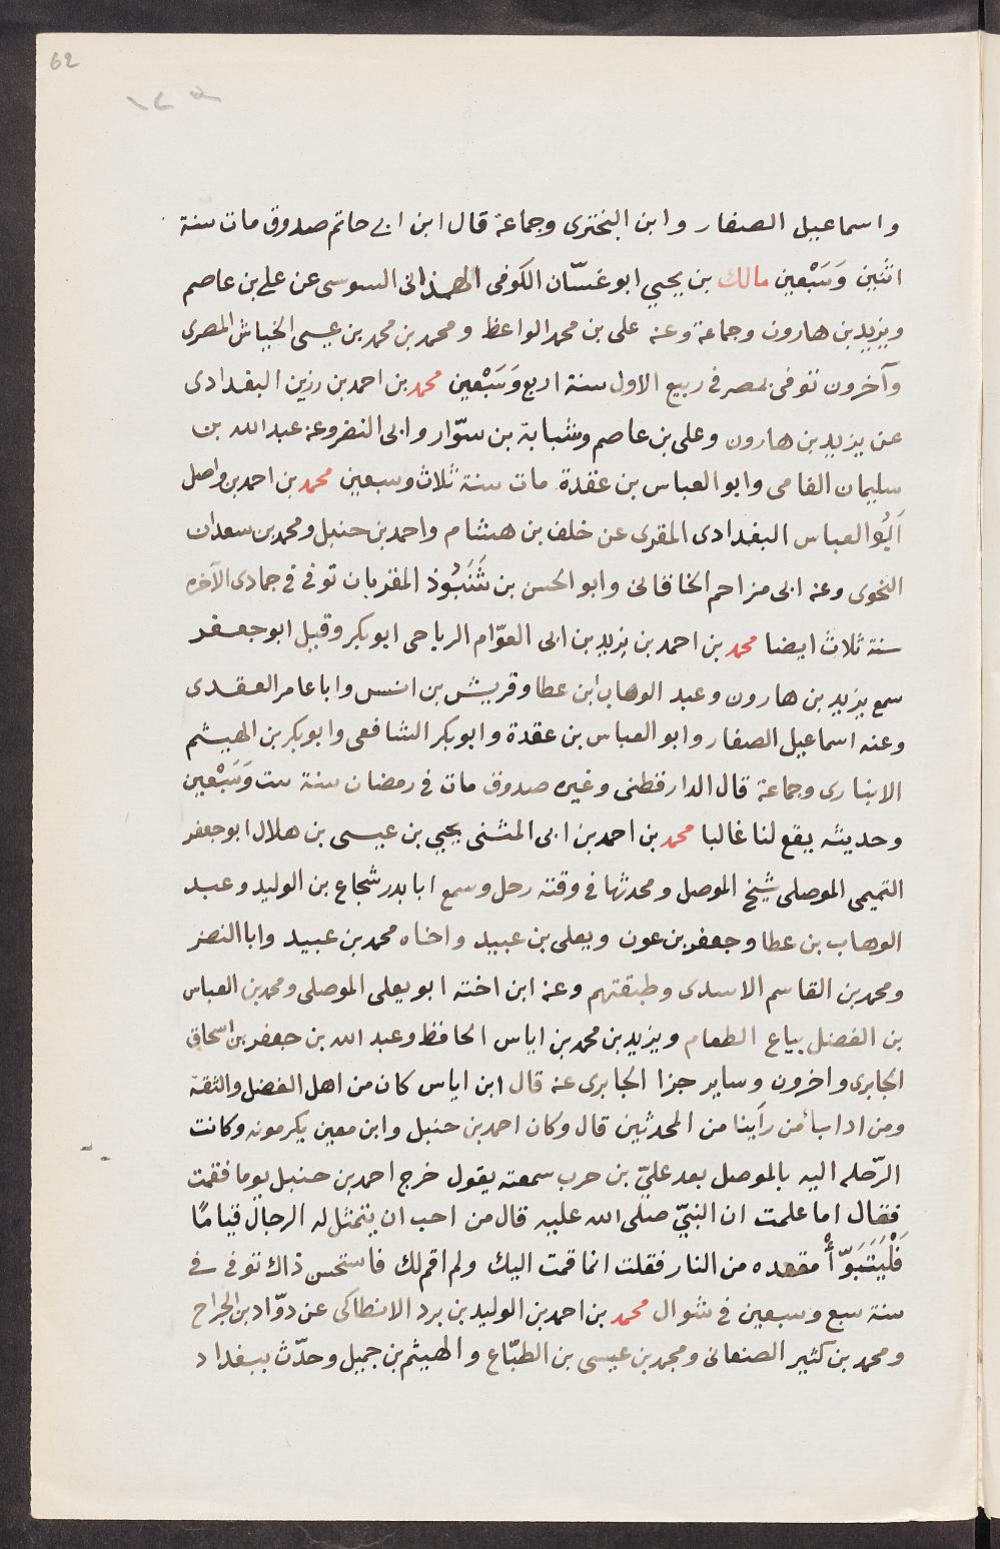 62
واسماعيل الصفار وابن البخترى وجماعة قال ابن ابى حاتم صدوق مات سنة
اثنين وَسَبْعين مالك بن يحيي ابو غسّان الكوفى الهمذانى السوسى عن على بن عاصم
ويزيد بن هارون وجماعة وعنه على بن محمد الواعظ ومحمد بن محمد بن عيسى الخياش المصرى
وآخرون توفى بمصر فى ربيع الاول سنة اربع وَسَبْعين محمد بن احمد بن رزين البغدادى
عن يزيد بن هارون وعلى بن عاصم وشبابة بن سوّار وابى النضر وعنه عبد الله بن
سليمان الفامى وابو العباس بن عقدة مات سنة ثلاث وسبعين محمد بن احمد بن واصل
اَبُو العباس البغدادى المقرى عن خلف بن هشام واحمد بن حنبل ومحمد بن سعدان
النحوى وعنه ابى مزاحم الخاقانى وابو الحسن بن شَنَبُوذ المقريان توفى فى جمادى الآخره
سنة ثلاث ايضا محمد بن احمد بن يزيد بن ابى العوّام الرياحى ابو بكر وقيل ابو جعفر
سمع يزيد بن هارون وعبد الوهاب ابن عطا وقريش بن انس وابا عامر العقدى
وعنه اسماعيل الصفار وابو العباس بن عقدة وابو بكر الشافعى وابو بكر بن الهيثم
الانبارى وجماعة قال الدارقطنى وغيره صدوق مات فى رمضان سنة ست وَسَبْعين
وحديثه يقع لنا غالبا محمد بن احمد بن ابى المثنى يحيي بن عيسى بن هلال ابو جعفر
التميمى الموصلى شيخ الموصل ومحدثها فى وقته رحل وسمع ابا بدر شجاع بن الوليد وعبد
الوهاب بن عطا وجعفر بن عون ويعلى بن عبيد واخاه محمد بن عبيد وابا النضر
ومحمد بن القاسم الاسدى وطبقتهم وعنه ابن اخته ابو يعلى الموصلى ومحمد بن العباس
بن الفضل بياع الطعام ويزيد بن محمد بن اياس الحافظ وعبد الله بن جعفر بن اسحاق
الجابرى واخرون وساير جزا الجابرى عنه قال ابن اياس كان من اهل الفضل والثقة
ومن اداب من رأينا من المحدثين قال وكان احمد بن حنبل وابن معين يكرمونه وكانت
الرّحله اليه بالموصل بعد علىّ بن حرب سمعته يقول خرج احمد بن حنبل يوما فقمت
فقال اما علمت ان النبىّ صلى الله عليه قال من احب ان يتمثل له الرجال قيامًا
فَلْيَتَبَوّأْ مقعده من النار فقلت انما قمت اليك ولم اقم لك فاستحسن ذاك توفى فى
سنة سبع وسبعين فى شوال محمد بن احمد بن الوليد بن برد الانطاكى عن روّاد بن الجراح
ومحمد بن كثير الصنعانى ومحمد بن عيسى بن الطبّاع والهيثم بن جميل وحدّث ببغداد